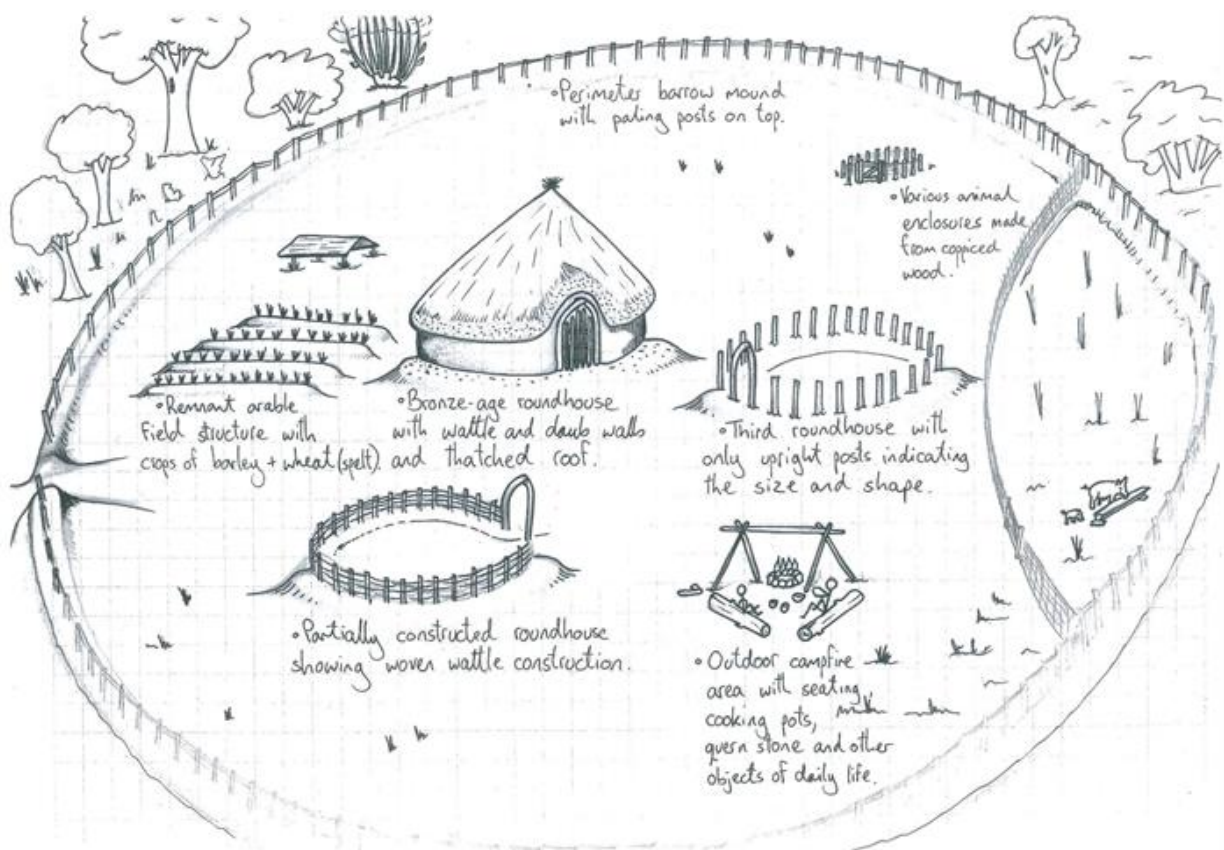 •Perimeter barrow mound
with paling posts on top.
•Various animal
enclosures made
from coppiced
wood.
•Remnant arable
field structure with
crops of barley + wheat (spelt)
•Bronze-age roundhouse
with wattle and daub walls
and thatched roof.
•Third roundhouse with
only upright posts indicating
the size and shape.
•Partially constructed roundhouse
showing woven wattle construction.
•Outdoor campfire
area with seating,
cooking pots,
quern stone and other
objects of daily life.